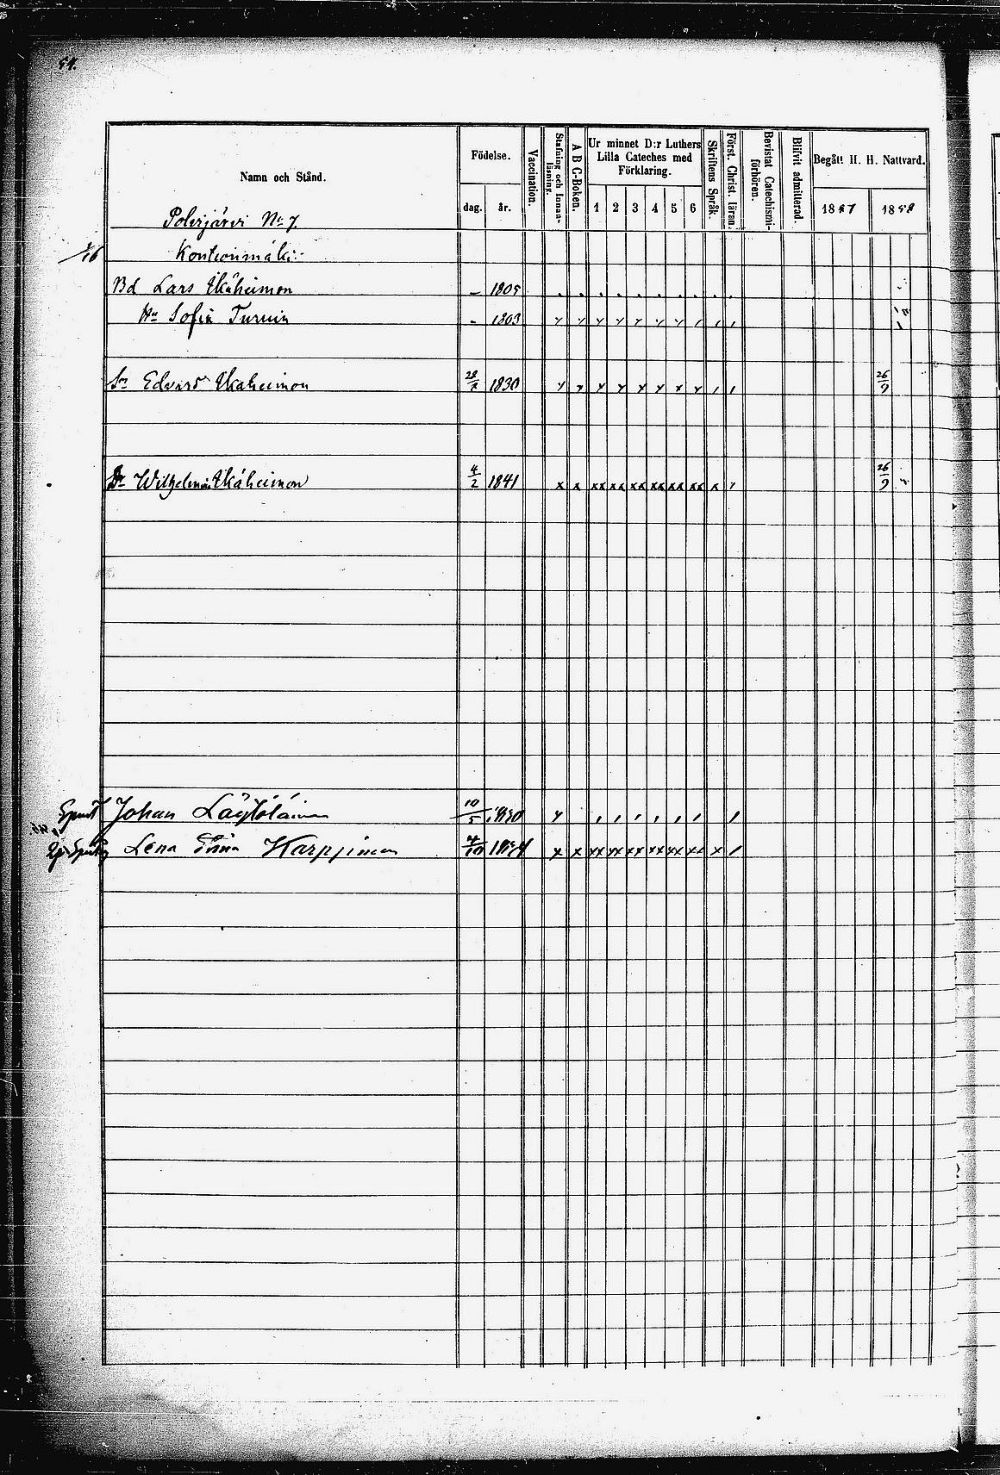 54.
Namn och Stånd.
Födelse.
dag.
år.
Vaccination.
Stafning och Innanläsning.
A B C-Boken.
Ur minnet D:r Luthers Lilla Cateches med Förklaring.
1 2 3 4 5 6
Skriftens Språk.
Först. Christ. läran.
Bevistat Catechismi-förhören.
Blifvit admitterad.
Begått H. H. Nattvard.
1857
1858
Polvijärvi No 7.
1/16
Kontionmäki
Bd Lars Ikäheimon - 1805
Hu Sofia Turuin - 1803
Sn Edvard Ikäheimon 1830 26/9
Dr Wilhelmin Ikäheimon 4/2 1841 26/9
Johan Löytöläinen 10/5
Lena Stina Karppinen